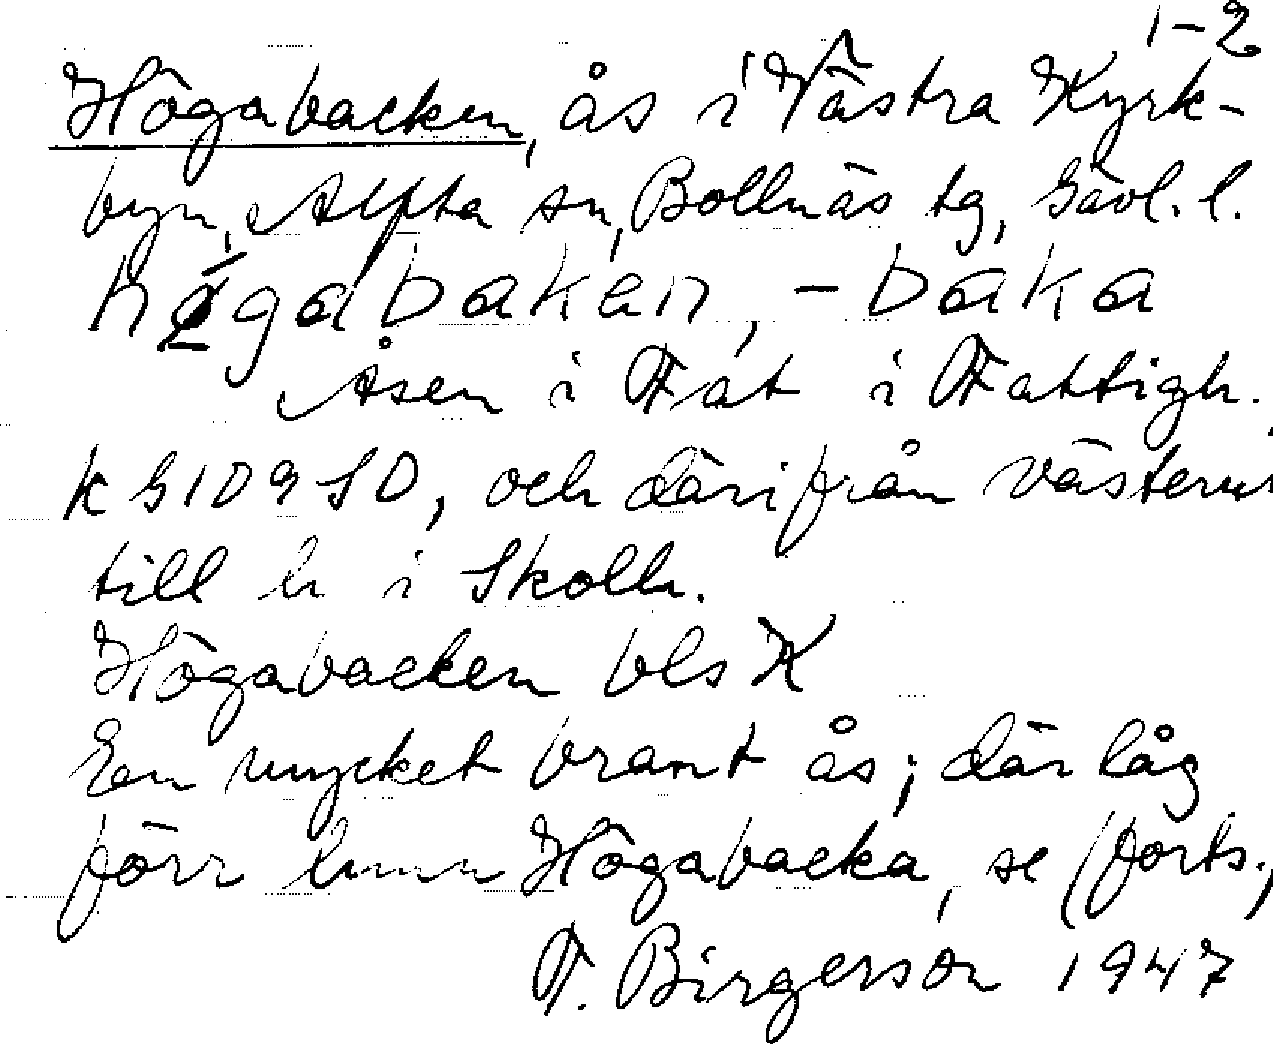 1-2
Högabacken, ås i Västra Kyrk-
byn, Alfta sn, Bollnäs tg, Gävl. l.
högabakan, -baka
Åsen i Fat i Fattigh.
k G109 SO, och därifrån västerut
till h i Skolh.
Högabacken bls K
En mycket brant ås; där låg
förr hmn Högabacka, se (forts.)
F. Birgerson 1947